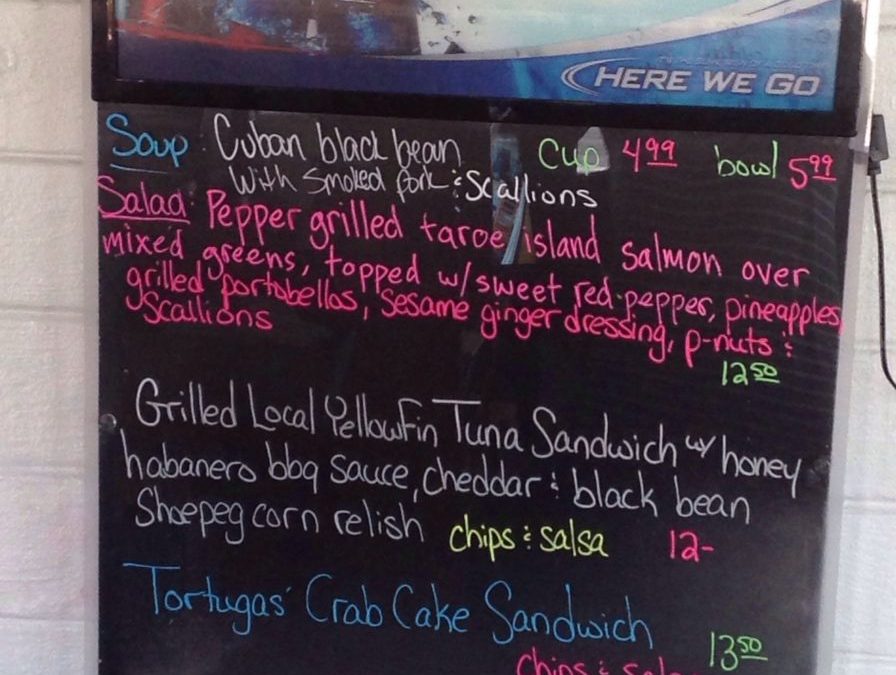 HERE WE GO
Soup: Cuban black bean cup 4.99 bowl 5.99
With smoked pork & scallions
Salad: Pepper grilled taroe island salmon over
mixed greens, topped w/ sweet red pepper, pineapples,
grilled portobellos, sesame ginger dressing, p-nuts &
scallions
12.50
Grilled Local Yellowfin Tuna Sandwich w/ honey
habanero bbq sauce, cheddar & black bean
Shoepeg corn relish chips & salsa 12-
Tortugas' Crab Cake Sandwich
13.50
chips & salsa